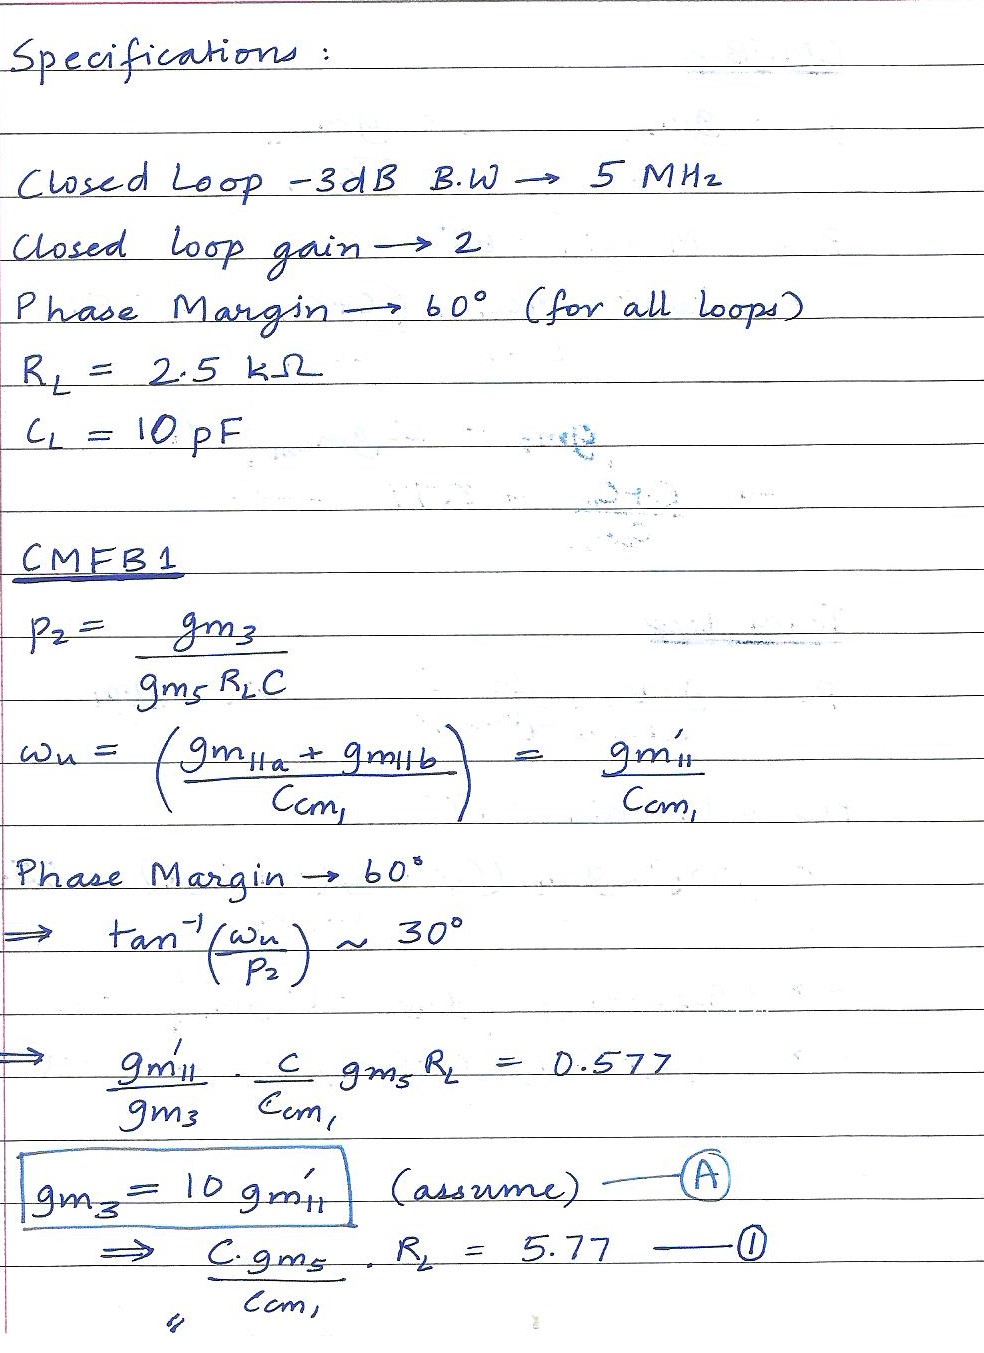 Specifications :
Closed Loop -3dB B.W → 5 MHz
Closed loop gain → 2
Phase Margin → 60° (for all loops)
R_L = 2.5 kΩ
C_L = 10 pF
CMFB1
p_2 = gm_3 / (gm_5 R_L C)
ω_u = ((gm_11a + gm_11b) / C_cm_1) = gm'_11 / C_cm_1
Phase Margin → 60°
⇒ tan^-1 (ω_u / p_2) ~ 30°
⇒ (gm'_11 / gm_3) . (C / C_cm_1) gm_5 R_L = 0.577
gm_3 = 10 gm'_11 (assume) — Ⓐ
⇒ (C. gm_5 / C_cm_1) . R_L = 5.77 — ①